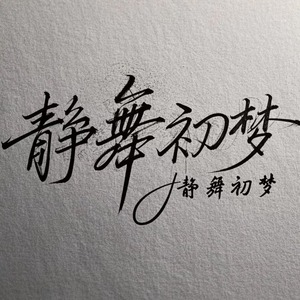 静舞初梦
静舞初梦